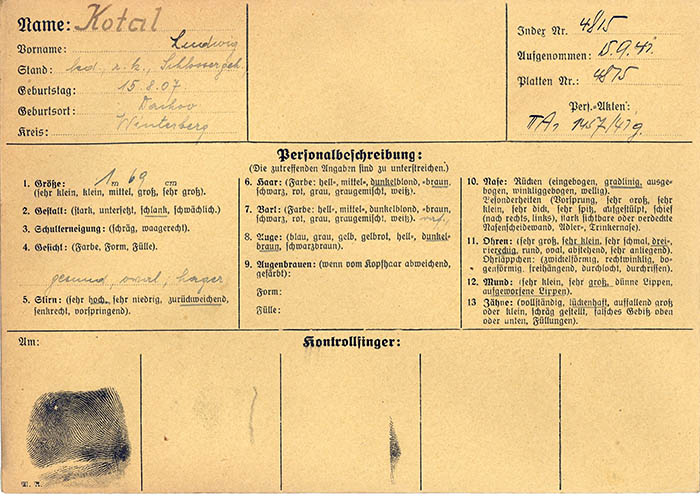 Name: Kotal
Vorname: Ludwig
Stand: led., r. k., Schlossergeh.
Geburtstag: 15.8.07.
Geburtsort:
Kreis: Winterberg
Index Nr. 4815
Aufgenommen: 15.9.41.
Platten Nr.: 4815
Pers.-Akten:
1457/41g
Personalbeschreibung:
(Die zutreffenden Angaben sind zu unterstreichen.)
1. Größe: 1 m 69 cm
(sehr klein, klein, mittel, groß, sehr groß).
2. Gestalt: (stark, untersetzt, schlank, schwächlich.)
3. Schulterneigung: (schräg, waagerecht).
4. Gesicht: (Farbe, Form, Fülle).
gesund, oval, hager
5. Stirn: (sehr hoch, sehr niedrig, zurückweichend,
senkrecht, vorspringend).
6. Haar: (Farbe: hell-, mittel-, dunkelblond, -braun,
schwarz, rot, grau, graugemischt, weiß).
7. Bart: (Farbe: hell-, mittel-, dunkelblond, -braun,
schwarz, rot, grau, graugemischt, weiß).
8. Auge: (blau, grau, gelb, gelbrot, hell-, dunkel-
braun, schwarzbraun).
9. Augenbrauen: (wenn vom Kopfhaar abweichend,
gefärbt):
Form:
Fülle:
10. Nase: Rücken (eingebogen, gradlinig, ausge-
bogen, winkliggebogen, wellig).
Besonderheiten (Vorsprung, sehr groß, sehr
klein, sehr dick, sehr spitz, aufgestülpt, schief
(nach rechts, links), stark sichtbare oder verdeckte
Nasenscheidewand, Adler-, Trinkernase).
11. Ohren: (sehr groß, sehr klein, sehr schmal, drei-
viereckig, rund, oval, abstehend, sehr anliegend).
Ohrläppchen: (zwickelförmig, rechtwinklig, bo-
genförmig, freihängend, durchlocht, durchrissen).
12. Mund: (sehr klein, sehr groß, dünne Lippen,
aufgeworfene Lippen).
13 Zähne: (vollständig, lückenhaft, auffallend groß
oder klein, schräg gestellt, falsches Gebiß oben
oder unten, Füllungen).
Am:
Kontrollfinger: